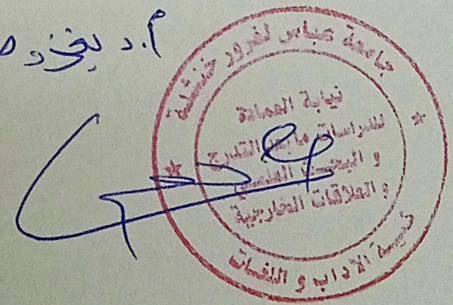 أ.د
جامعة عباس لغرور خنشلة
نيابة العمادة
للدراسات ما بعد التدرج
و البحث العلمي
و العلاقات الخارجية
كلية الآداب و اللغات